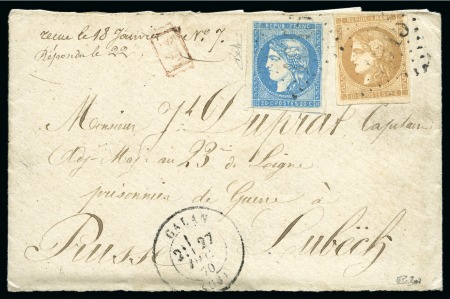 reçue le 18 Janvier N° 7.
Répondu le 22
REPUB. FRANC.
20 C. POSTES 20 C.
REPUB. FRANC.
Monsieur Jh Duprat Capitaine
Adj-Maj. au 23e de Ligne
prisonnier de Guerre à
Prusse Lubëck
GALAN
27
70